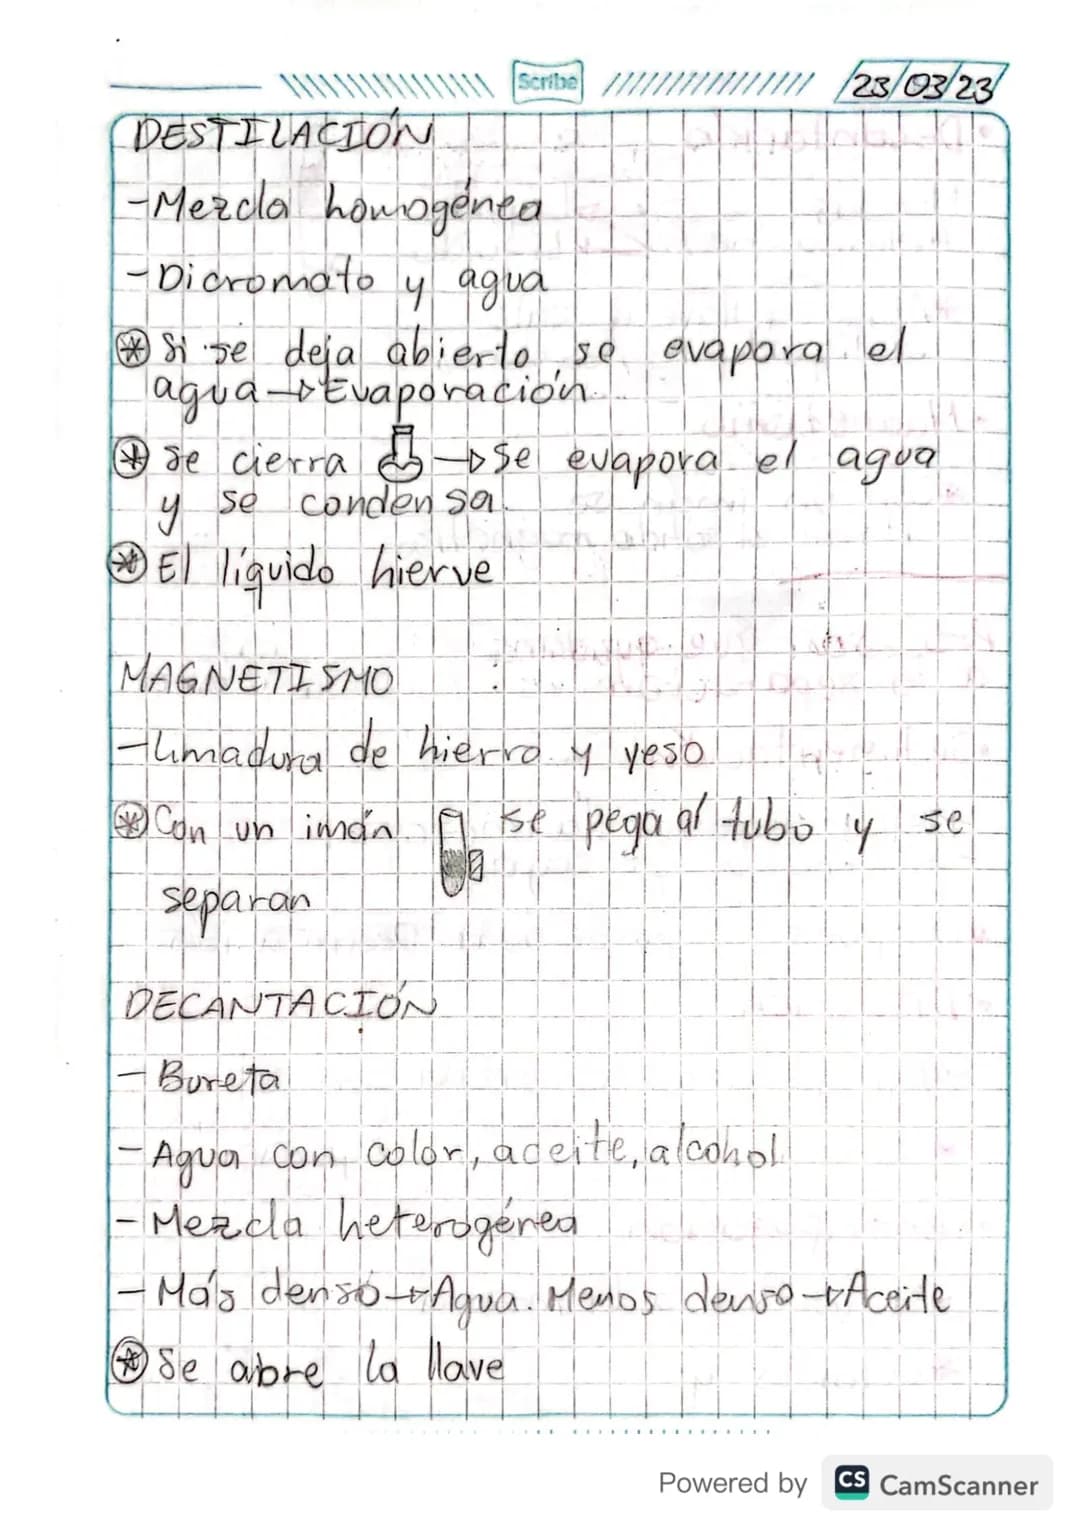 Scribe 23/03/23
DESTILACIÓN
-Mezcla homogénea
-Dicromato y agua
* Si se deja abierto se evapora el
agua→Evaporación.
* Se cierra →Se evapora el agua
y se condensa.
* El líquido hierve
MAGNETISMO
-Limadura de hierro y yeso
* Con un imán se pega al tubo y se
separan
DECANTACIÓN
- Bureta
- Agua con color, aceite, alcohol
- Mezcla heterogénea
- Más denso→Agua. Menos denso→Aceite
* Se abre la llave
Powered by CS CamScanner